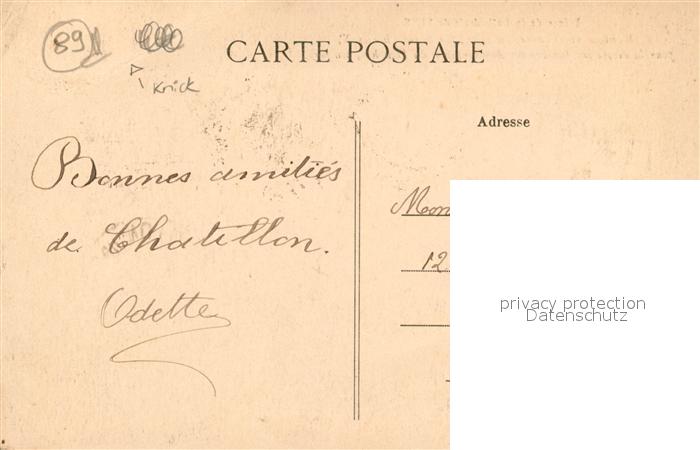 89
Knick
CARTE POSTALE
Adresse
Bonnes amitiés
de Chatillon.
Odette
Mon
12
privacy protection
Datenschutz